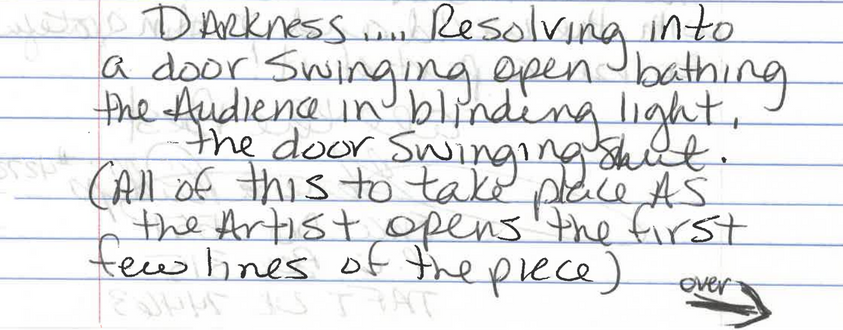 DARKNESS.... Resolving into
a door Swinging open bathing
the Audience in blinding light,
the door Swinging Shut.
(All of this to take place AS
the Artist opens the first
few lines of the piece)
over